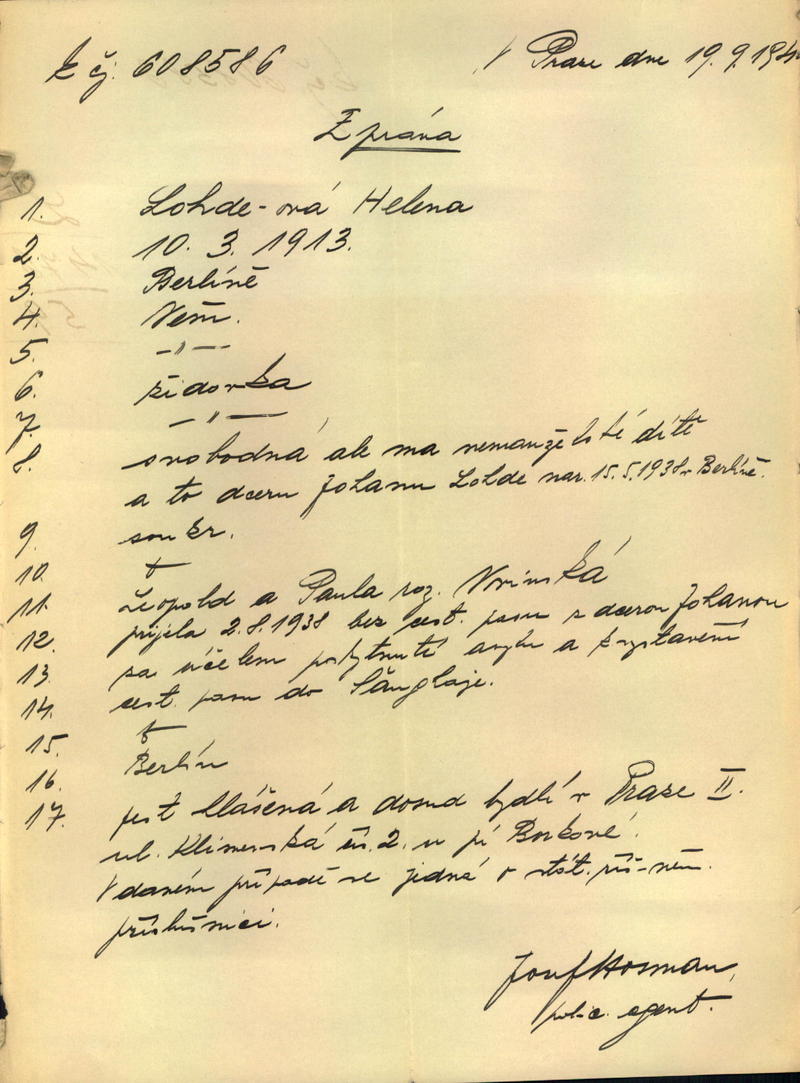 K čj. 608586 V Praze dne 19.9.194
Zpráva
1. Lohde-ová Helena
2. 10. 3. 1913.
3. Berlíně
4. Něm.
5. —"—
6. židovka
7. —"—
8. svobodná ale má nemanželské dítě
a to dceru Johanu Lohde nar. 15.5.1938 v Berlíně.
9. soukr.
10.
11. Leopold a Paula roz.
12. přijela 2.8.1938 bez cest. pasu s dcerou Johanou
13. za účelem poskytnutí azylu a k vystavení
14. cest. pasu do Šanghaje.
15.
16. Berlín
17. jest hlášená a dosud bydlí v Praze II.
ul. Klimentská čís. 2. u pí
V daném případě se jedná o stát. říš-něm.
příslušnici.
Josef Hosman,
polic. agent.